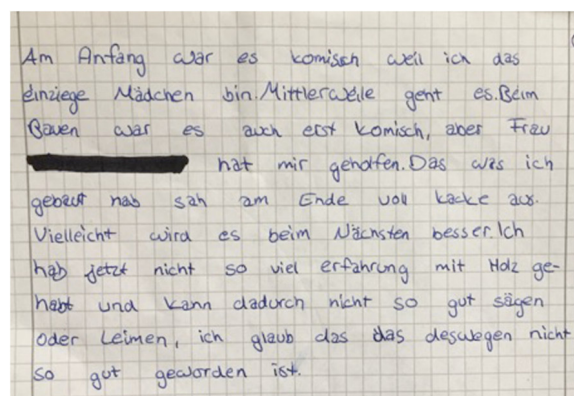 Am Anfang war es komisch weil ich das
einziege Mädchen bin. Mittlerweile geht es. Beim
Bauen war es auch erst komisch, aber Frau
hat mir geholfen. Das was ich
gebaut hab sah am Ende voll kacke aus.
Vielleicht wird es beim Nächsten besser. Ich
hab jetzt nicht so viel erfahrung mit Holz ge-
habt und kann dadurch nicht so gut sägen
oder Leimen, ich glaub das das deswegen nicht
so gut geworden ist.